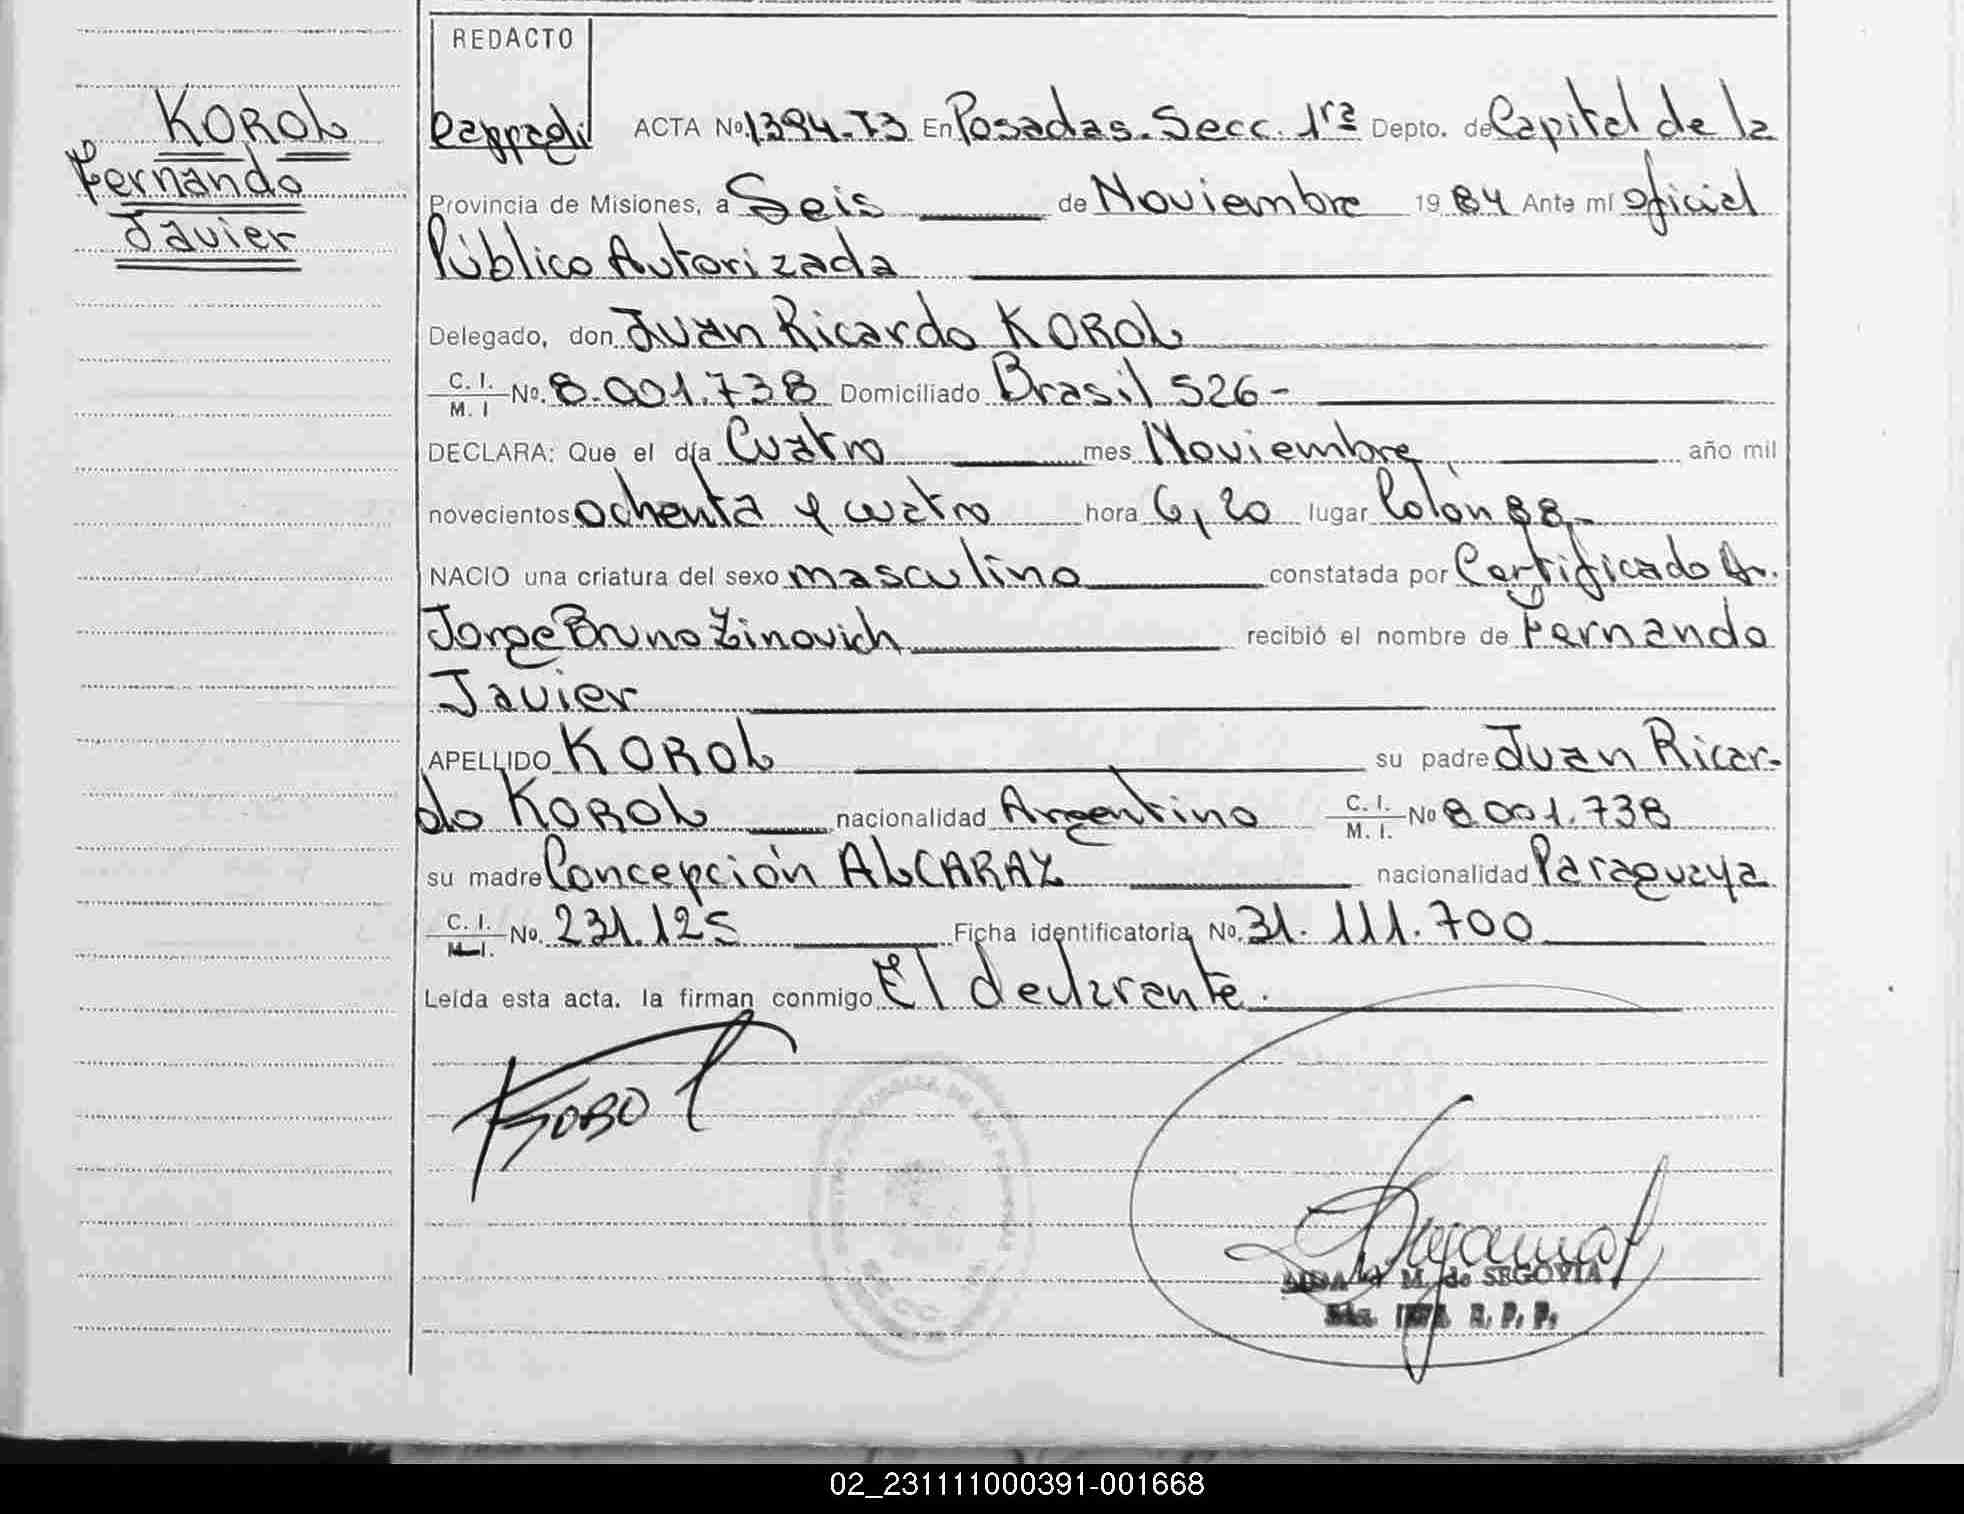 KOROL
Fernando
Javier
REDACTO
ACTA Nº 1394-T3 En Posadas. Secc. 1ra Depto. de Capital de la
Provincia de Misiones, a Seis de Noviembre 1984 Ante mí oficial
Público Autorizada
Delegado, don Juan Ricardo KOROL
C. I. M. I Nº. 8.001.738 Domiciliado Brasil 526-
DECLARA: Que el día Cuatro mes Noviembre año mil
novecientos ochenta y cuatro hora 6,20 lugar Colón 88-
NACIO una criatura del sexo masculino constatada por Certificado Dr.
Jorge Bruno Zinovich recibió el nombre de Fernando
Javier
APELLIDO KOROL su padre Juan Ricar-
do KOROL nacionalidad Argentino C. I. M. I. Nº 8.001.738
su madre Concepción ALCARAZ nacionalidad Paraguaya
C. I. M. I. Nº. 231.125 Ficha identificatoria Nº. 31.111.700
Leída esta acta, la firman conmigo El declarante.
Korol
M. de SEGOVIA
R. P. P.
02_231111000391-001668